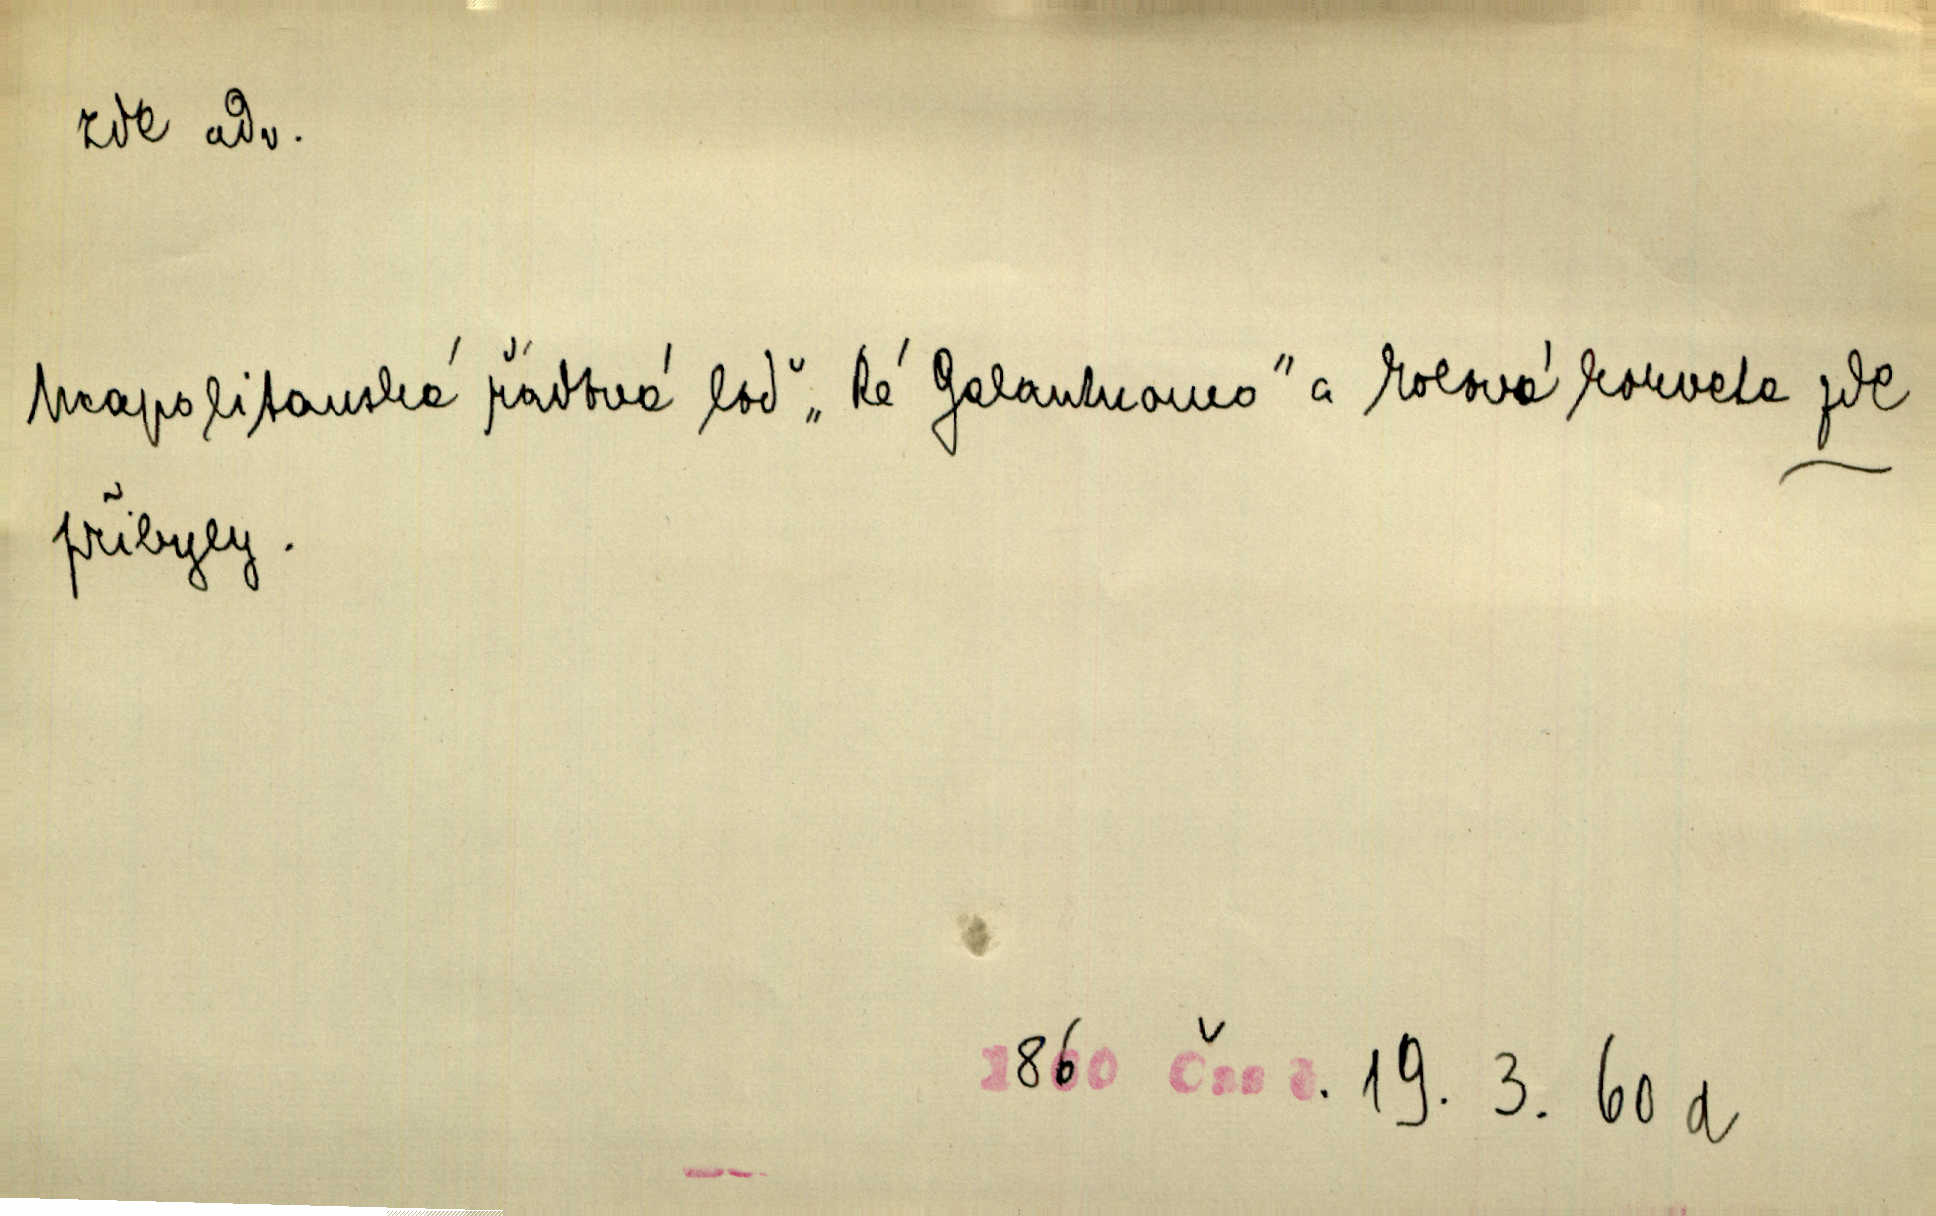 zde adv.
Neapolitanská řadová loď „Ré Galantuomo" a kolová korveta zde
přibyly.
1860 Čas 1. 19. 3. 60 d